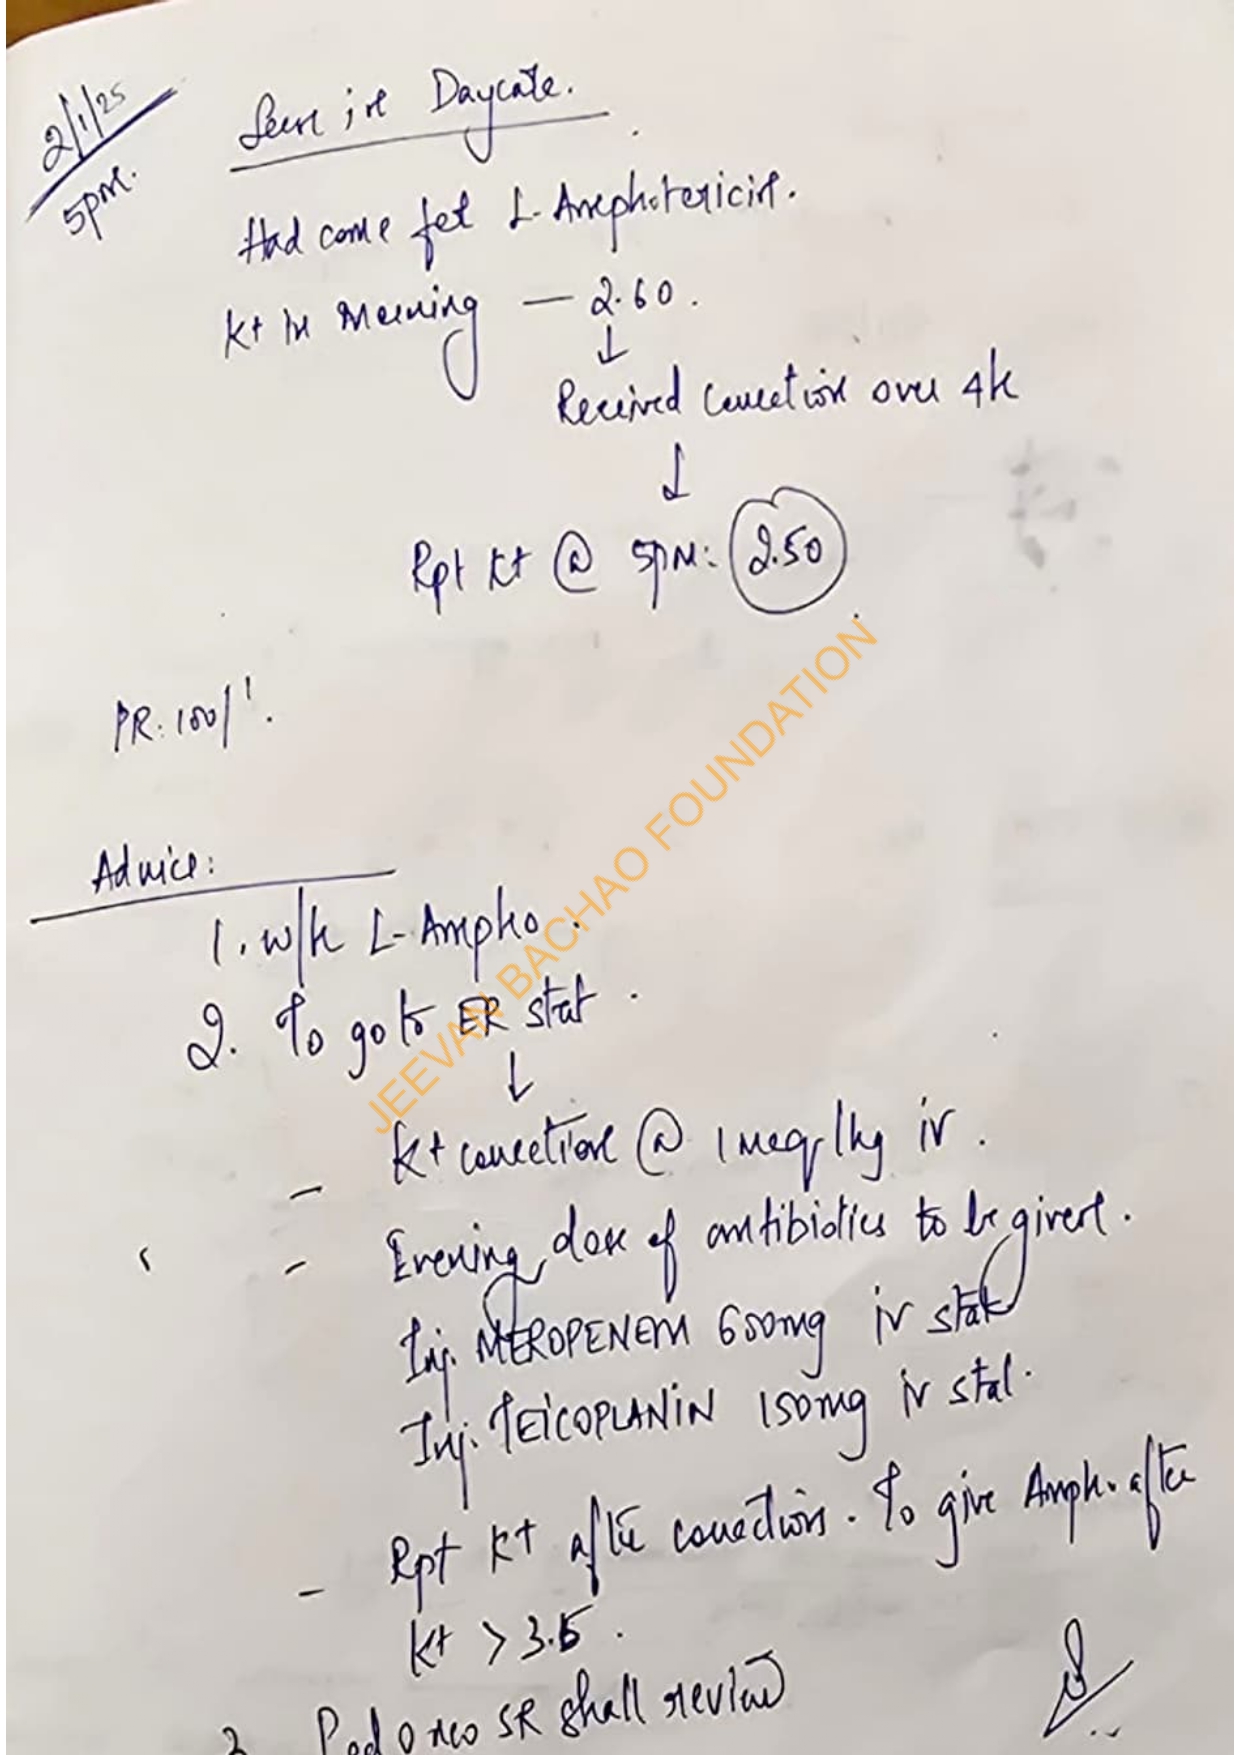 2/1/25
5pm.
Seen in Daycare.
Had come for L-Amphotericin.
K+ in Morning — 2.60.
↓
Received correction over 4h
↓
Rpt K+ @ 5pm: 2.50
PR: 100/'.
Advice:
1. w/h L-Ampho.
2. To go to ER stat.
↓
- K+ correction @ 1meq/kg iv.
- Evening dose of antibiotics to be given.
Inj. MEROPENEM 600mg iv stat
Inj. TEICOPLANIN 150mg iv stat.
- Rpt K+ after correction. To give Ampho after
K+ > 3.5.
3. Ped Onco SR shall review
JEEVAN BACHAO FOUNDATION